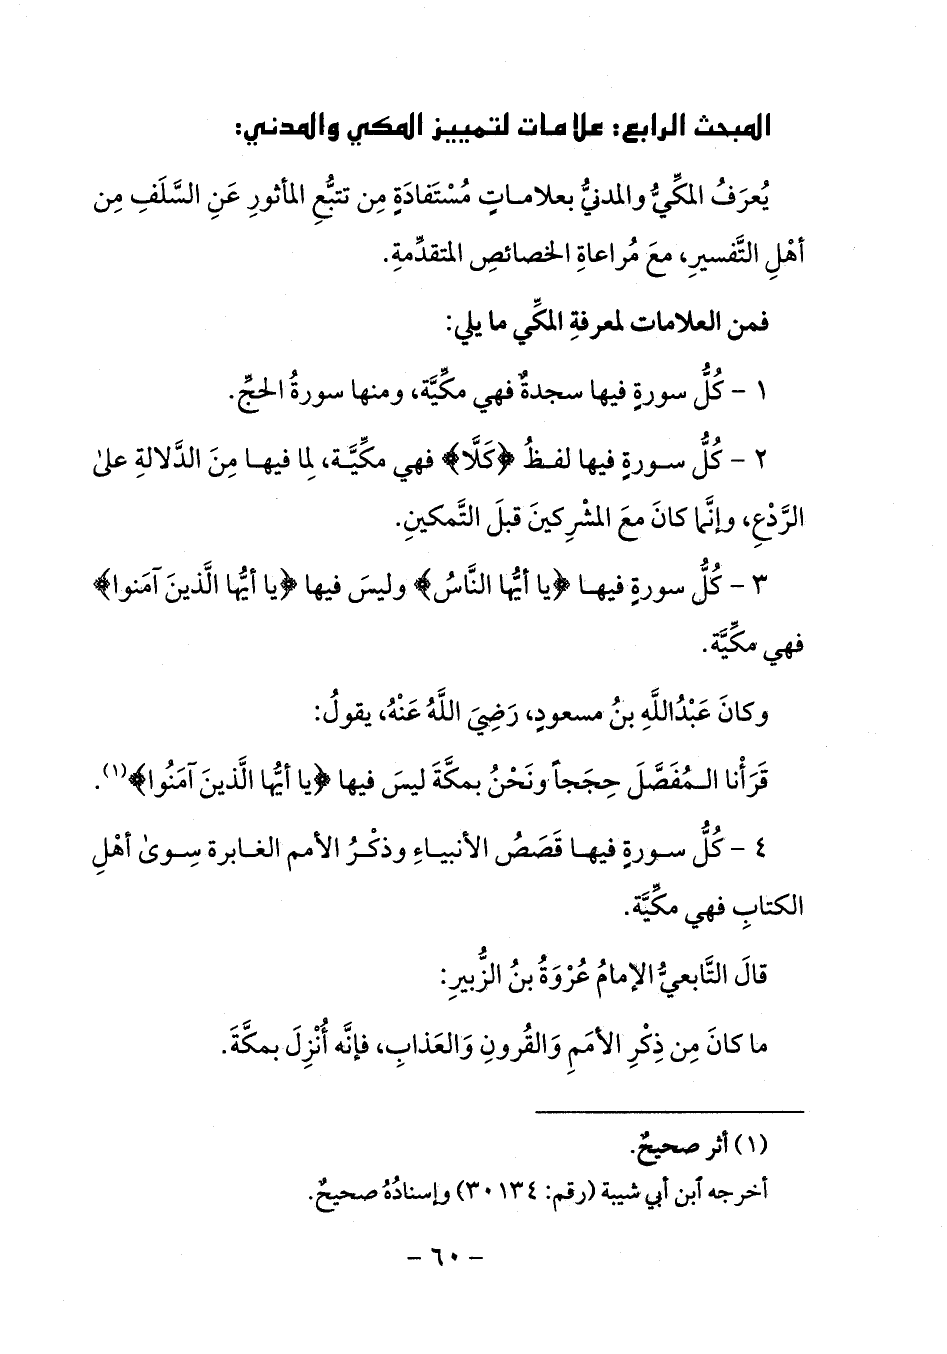 المبحث الرابع: علامات لتمييز المكي والمدني:
يُعرَفُ المكِّيُّ والمدنيُّ بعلاماتٍ مُسْتَفادَةٍ مِن تتبُّعِ المأثورِ عَنِ السَّلَفِ مِن
أهْلِ التَّفسيرِ، معَ مُراعاةِ الخصائصِ المتقدِّمةِ.
فمن العلامات لمعرفةِ المكِّي ما يلي:
١ - كُلُّ سورةٍ فيها سجدةٌ فهي مكِّيَّة، ومنها سورةُ الحجِّ.
٢ - كُلُّ سورةٍ فيها لفظُ ﴿كَلَّا﴾ فهي مكِّيَّة، لِما فيها مِنَ الدَّلالةِ علىٰ
الرَّدْعِ، وإنَّما كانَ معَ المشْرِكينَ قبلَ التَّمكينِ.
٣ - كُلُّ سورةٍ فيها ﴿يا أيُّها النَّاسُ﴾ وليسَ فيها ﴿يا أيُّها الَّذينَ آمَنوا﴾
فهي مكِّيَّة.
وكانَ عَبْدُاللَّهِ بنُ مسعودٍ، رَضِيَ اللَّهُ عَنْهُ، يقولُ:
قَرَأْنا المُفَصَّلَ حِجَجاً ونَحْنُ بمكَّةَ ليسَ فيها ﴿يا أيُّها الَّذينَ آمَنُوا﴾(١).
٤ - كُلُّ سورةٍ فيها قَصَصُ الأنبياءِ وذكْرُ الأمم الغابرة سِوىٰ أهْلِ
الكتابِ فهي مكِّيَّة.
قالَ التَّابعيُّ الإمامُ عُرْوَةُ بنُ الزُّبيرِ:
ما كانَ مِن ذِكْرِ الأمَمِ وَالقُرونِ وَالعَذابِ، فإنَّه أُنْزِلَ بمكَّةَ.
(١) أثر صحيحٌ.
أخرجه ٱبن أبي شيبة (رقم: ٣٠١٣٤) وإسنادُهُ صحيحٌ.
- ٦٠ -